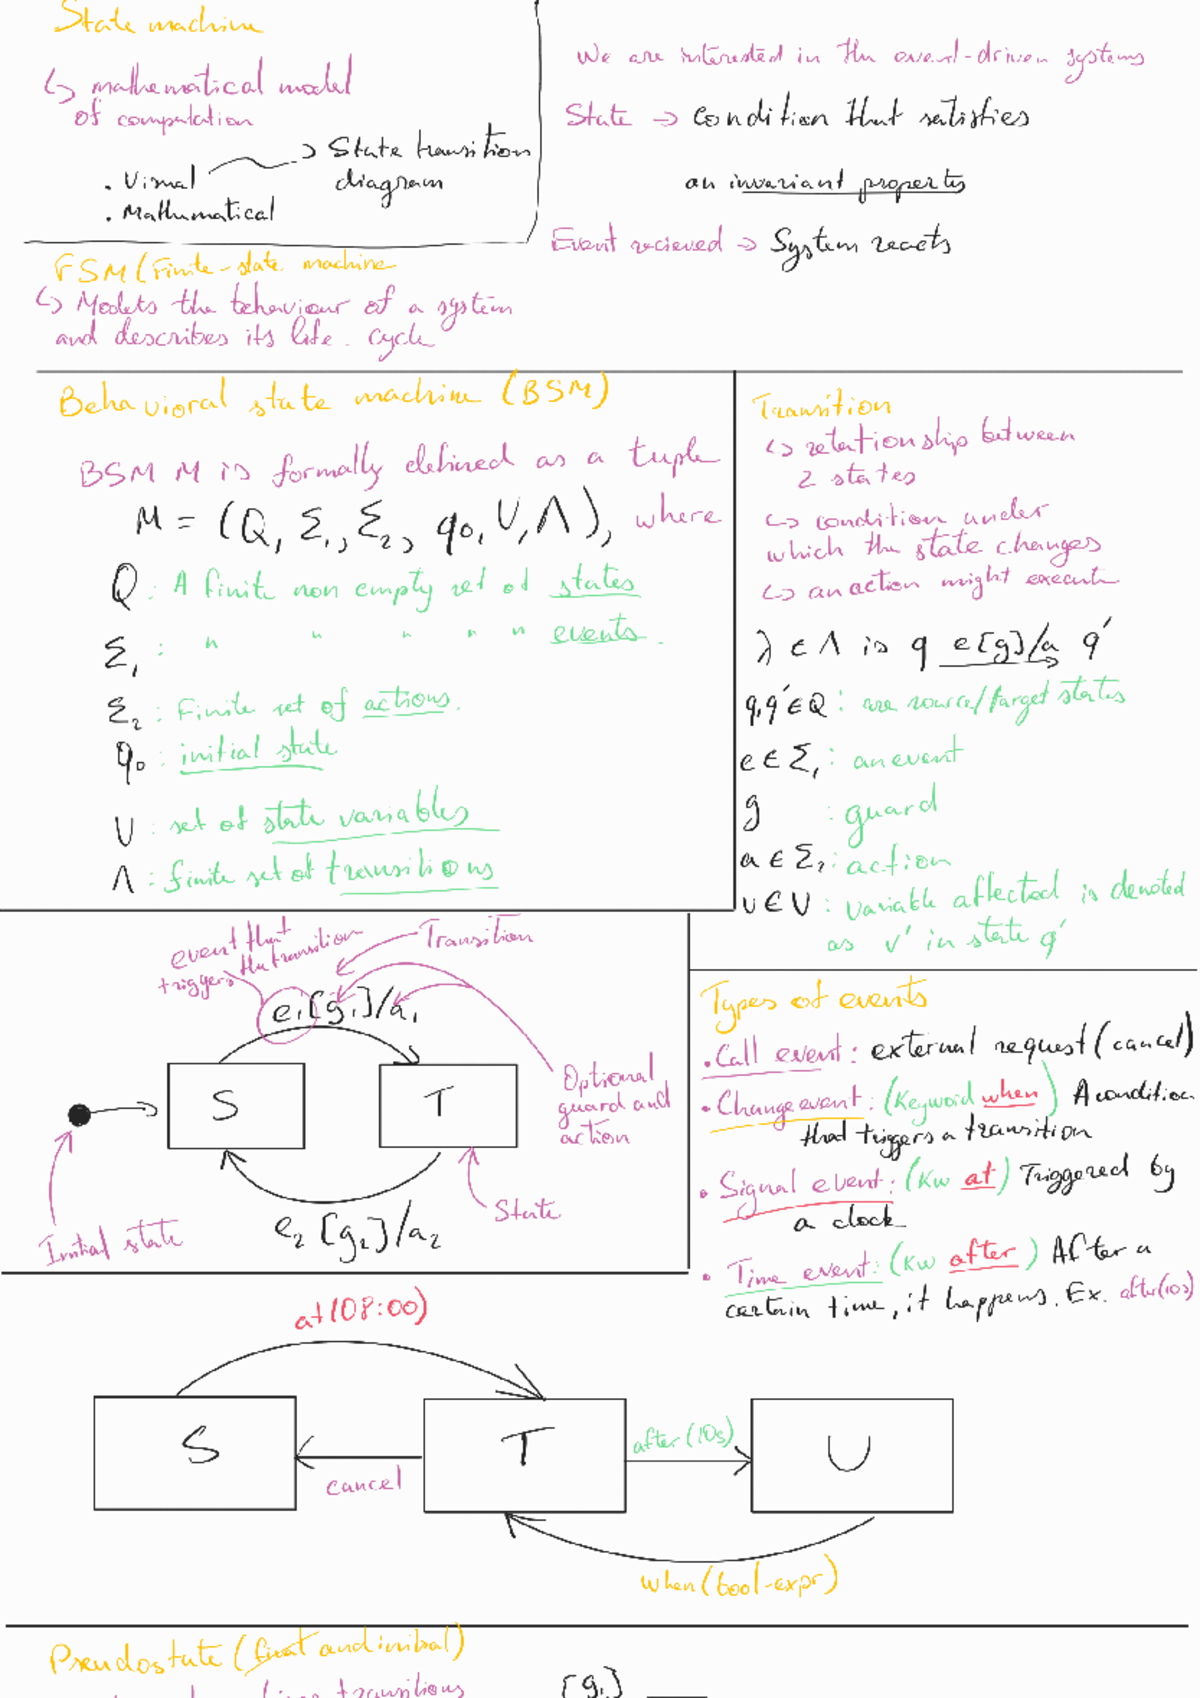 State machine
↳ mathematical model
of computation
. Visual → State transition
diagram
. Mathematical
We are interested in the event-driven systems
State → condition that satisfies
an invariant property
Event recieved → System reacts
FSM (Finite-state machine
↳ Models the behaviour of a system
and describes its life cycle
Behavioral state machine (BSM)
BSM M is formally defined as a tuple
M = (Q, Σ₁, Σ₂, q₀, V, Λ), where
Q : A finite non empty set of states
Σ₁ : " " " " " events.
Σ₂ : Finite set of actions.
q₀ : initial state
V : set of state variables
Λ : finite set of transitions
Transition
↳ relationship between
2 states
↳ condition under
which the state changes
↳ an action might execute
λ ∈ Λ is q e[g]/a→ q'
q, q' ∈ Q : are source/target states
e ∈ Σ₁ : an event
g : guard
a ∈ Σ₂ : action
v ∈ V : variable affected is denoted
as v' in state q'
event that
triggers the transition
Transition
e₁[g₁]/a₁
S
T
Optional
guard and
action
State
Initial state
e₂ [g₂]/a₂
Types of events
. Call event : external request (cancel)
. Change event : (Keyword when) A condition
that triggers a transition
. Signal event : (Kw at) Triggered by
a clock
. Time event : (Kw after) After a
certain time, it happens. Ex. after(10s)
at(08:00)
S
T
U
cancel
after(10s)
when(bool-expr)
Pseudostate (final and initial)
transitions
[g₁]